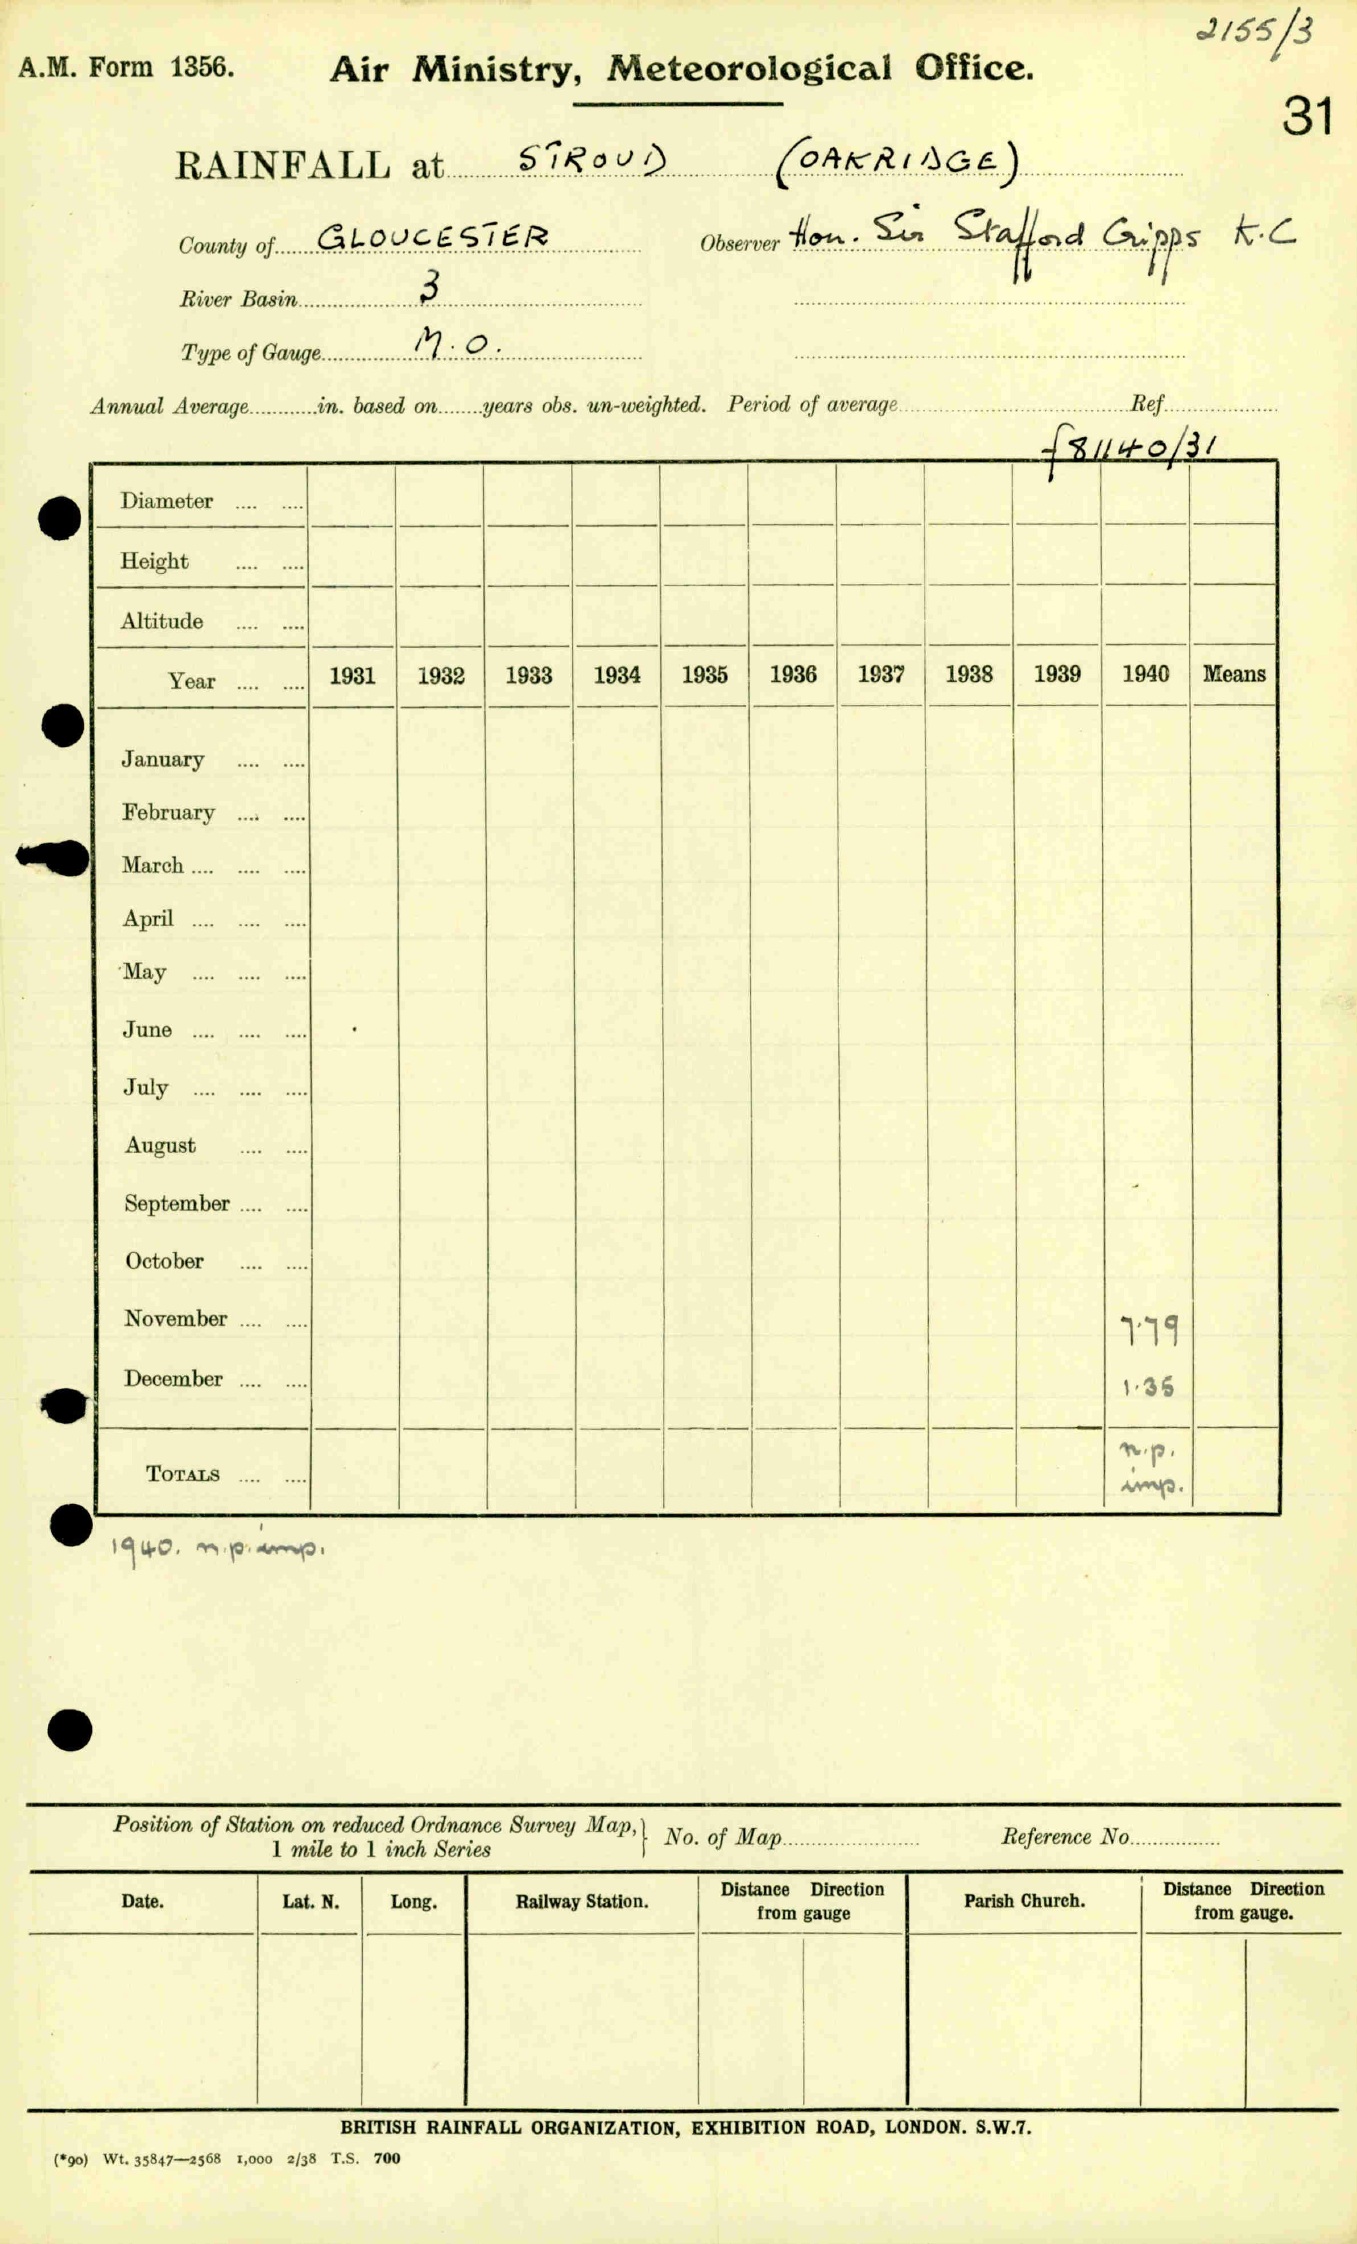 2155/3
A.M. Form 1356. Air Ministry, Meteorological Office.
31
RAINFALL at STROUD (OAKRIDGE)
County of GLOUCESTER Observer Hon. Sir Stafford Cripps K.C
River Basin 3
Type of Gauge M.O.
Annual Average............in. based on........years obs. un-weighted. Period of average............ Ref............
f81140/31
Diameter .... ....
Height .... ....
Altitude .... ....
Year .... .... 1931 1932 1933 1934 1935 1936 1937 1938 1939 1940 Means
January .... ....
February .... ....
March .... .... ....
April .... .... ....
May .... .... ....
June .... .... ....
July .... .... ....
August .... ....
September .... ....
October .... ....
November .... .... 7.79
December .... .... 1.35
n.p.
TOTALS .... .... imp.
1940. n.p. imp.
Position of Station on reduced Ordnance Survey Map,
1 mile to 1 inch Series } No. of Map............ Reference No............
Date. Lat. N. Long. Railway Station. Distance Direction from gauge Parish Church. Distance Direction from gauge.
BRITISH RAINFALL ORGANIZATION, EXHIBITION ROAD, LONDON. S.W.7.
(*90) Wt. 35847—2568 1,000 2/38 T.S. 700